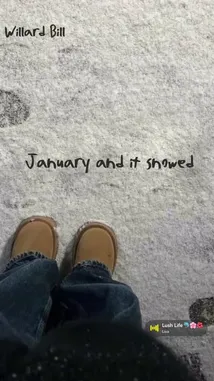 Willard Bill
January and it snowed
Lush Life